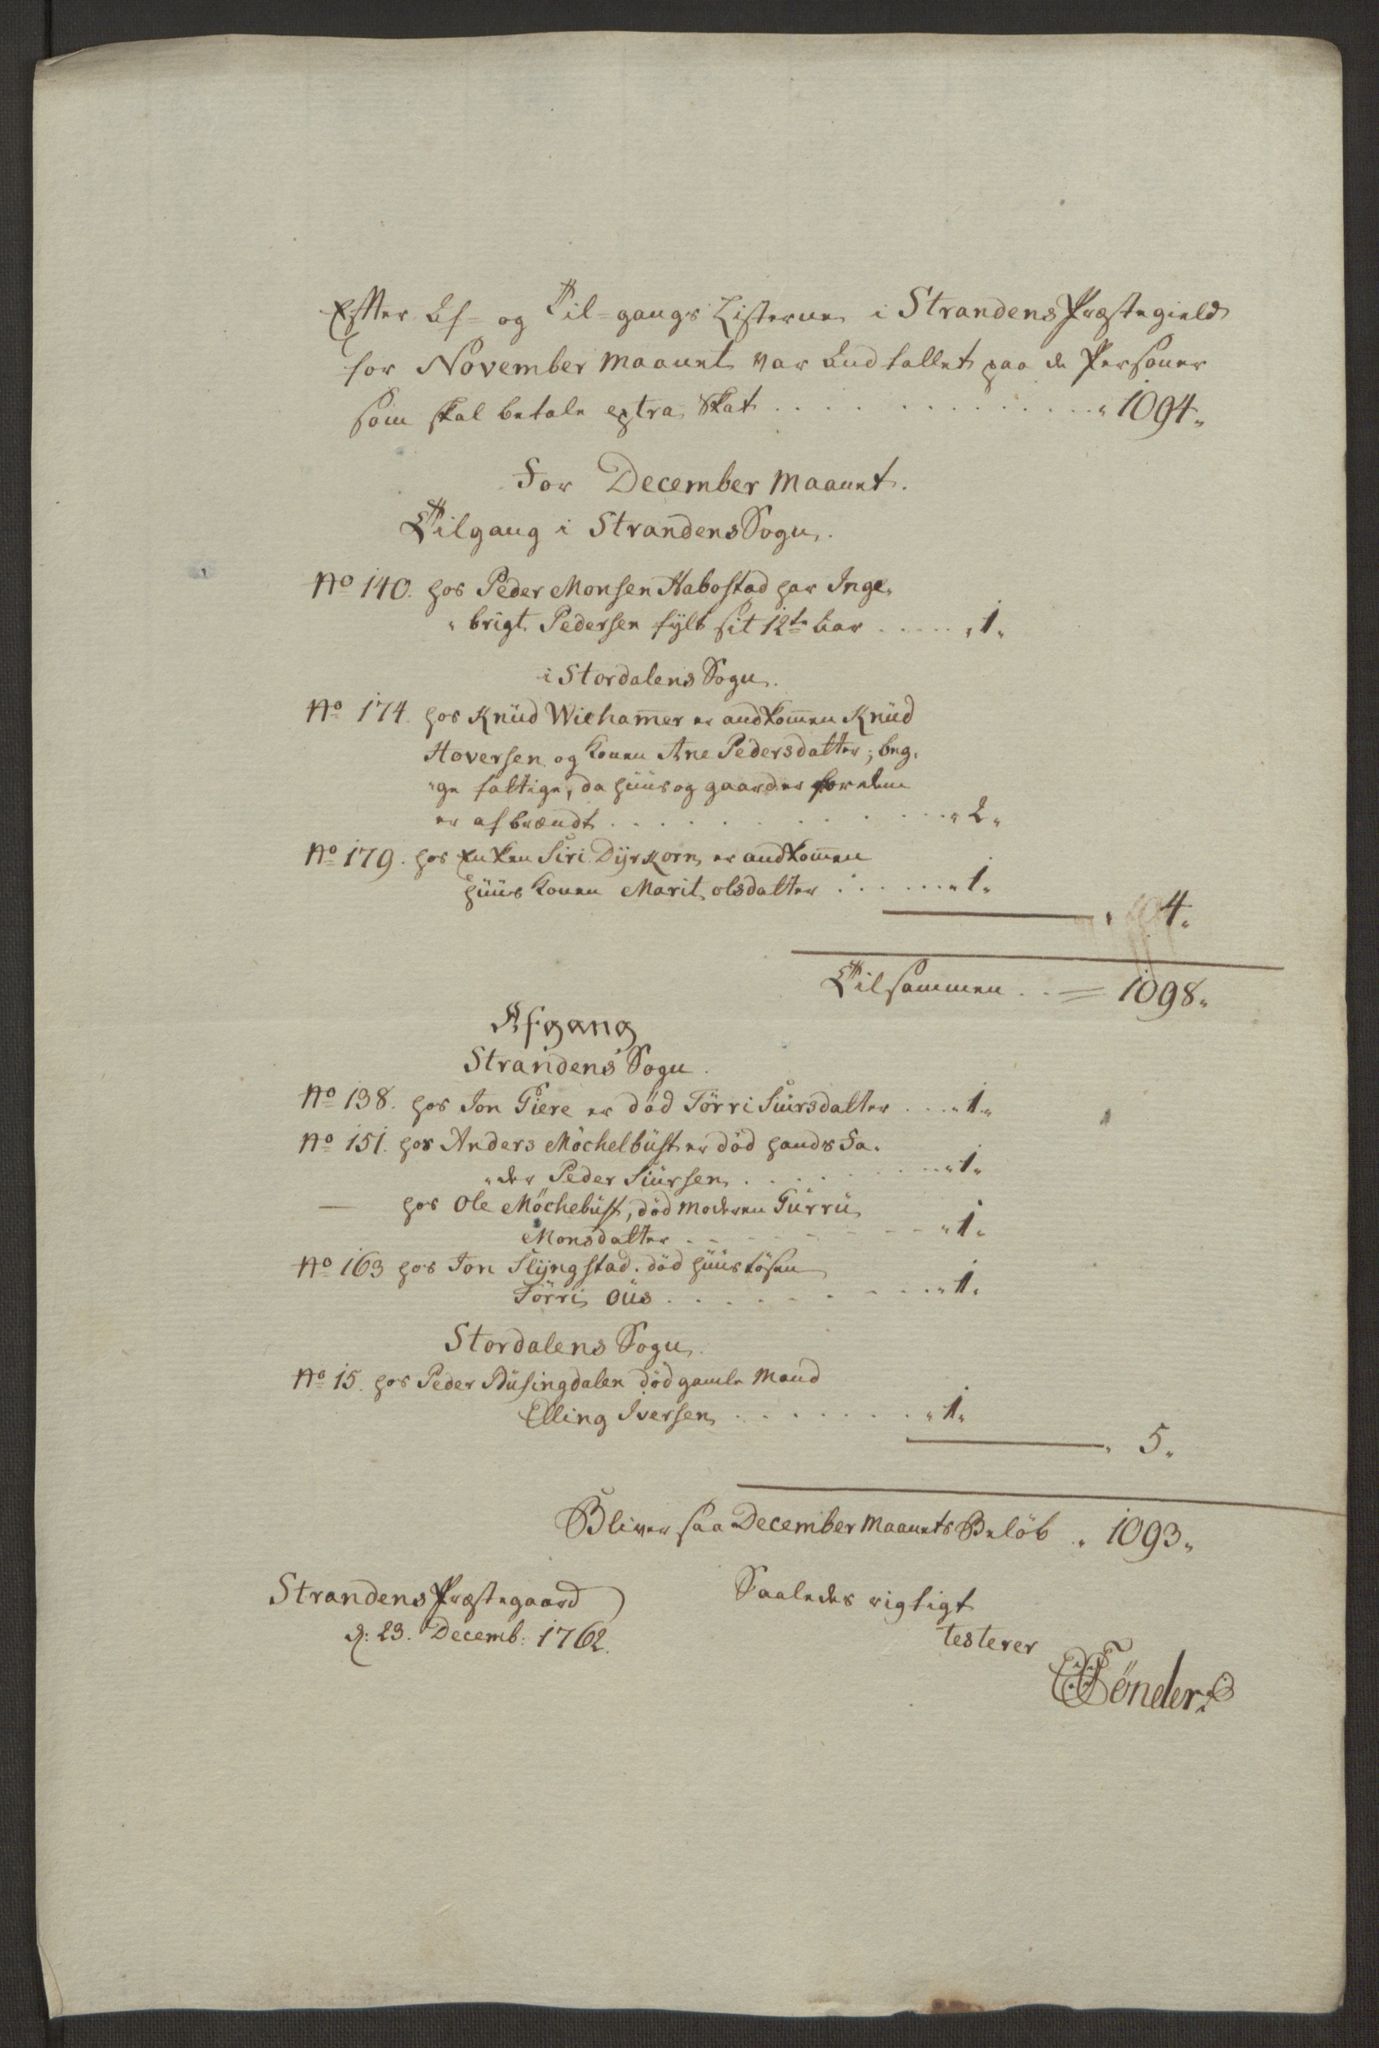 Effter Af- og Til-gangs Listerne i Strandens Præstegield
for November Maanet var Endtallet paa de Personer
som skal betale extra Skat . . . . . . . . . . . . . . . " 1094 "
For December Maanet.
Tilgang i Strandens Sogn.
No 140. hos Peder Monsen Habostad har Inge-
" brigt Pedersen fylt sit 12te Aar . . . . . " 1 "
i Stordalens Sogn.
No 174. hos Knüd Wichamer er andkomen Knüd
Hoversen og Konen Ane Pedersdatter, beg-
" ge fattige, da hüüs og gaarder for dem
er afbrændt . . . . . . . . . . . . " 2 "
No 179. hos Enken Siri Dyrkorn er andkomen
hüüs Konen Marit olsdatter . . . . . . " 1 "
" 4 "
Tilsammen . . = 1098 "
Afgang
Strandens Sogn.
No 138. hos Jon Giere er død Tørri Siursdatter . . . . " 1 "
No 151. hos Anders Møchelbüst er død hands Fa-
" der Peder Siursen . . . . . . . . " 1 "
— hos Ole Møchebüst, død Moderen Gürrü
Monsdatter . . - - - - - - - " 1 "
No 163 hos Jon Slyngstad. død hüüsløsen
Tørri Øüs . . . . . . . . . " 1 "
Stordalens Sogn.
No 15. hos Peder Büsingdalen død gamle Mand
Elling Iversen . . . . . . . . " 1 "
" 5 "
Bliver saa December Maanets Beløb " 1093 "
Strandens Præstegaard
d: 23. Decemb: 1762.
Saaledes rigtigt
testerer
Tønder